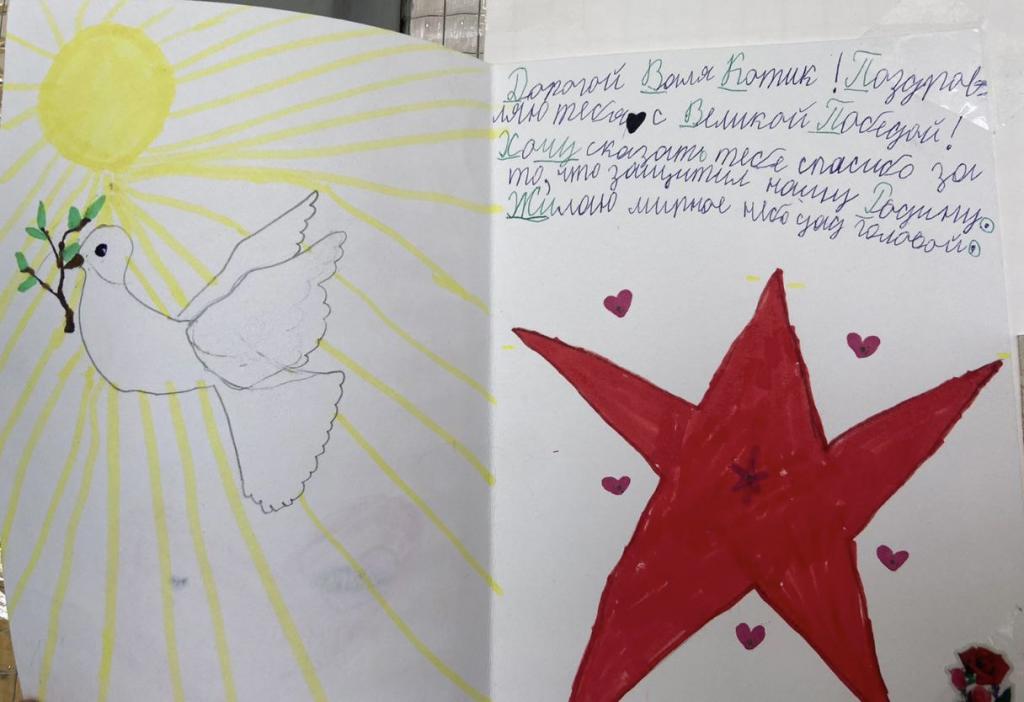 Дорогой Валя Котик! Поздрав-
ляю тебя с Великой Победой!
Хочу сказать тебе спасибо за
то, что защитил нашу Родину.
Жилаю мирное небо над головой.